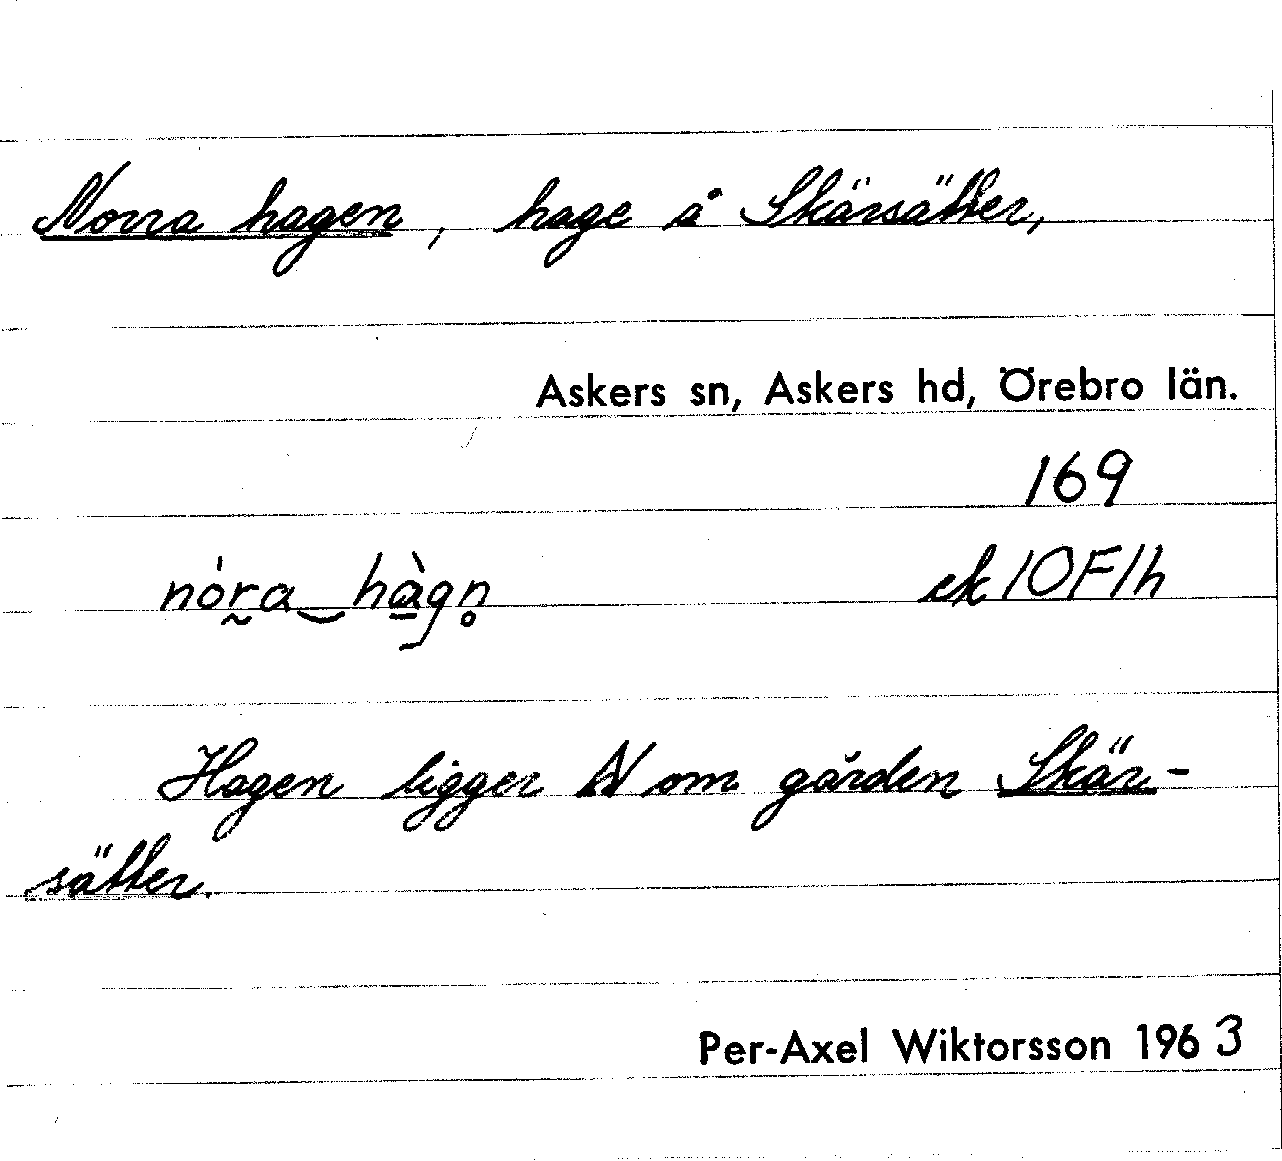 Norra hagen, hage å Skärsätter,
Askers sn, Askers hd, Örebro län.
169
nó̀ra‿hàgn̥ ek 10F1h
Hagen ligger N om gården Skär-
sätter.
Per-Axel Wiktorsson 1963